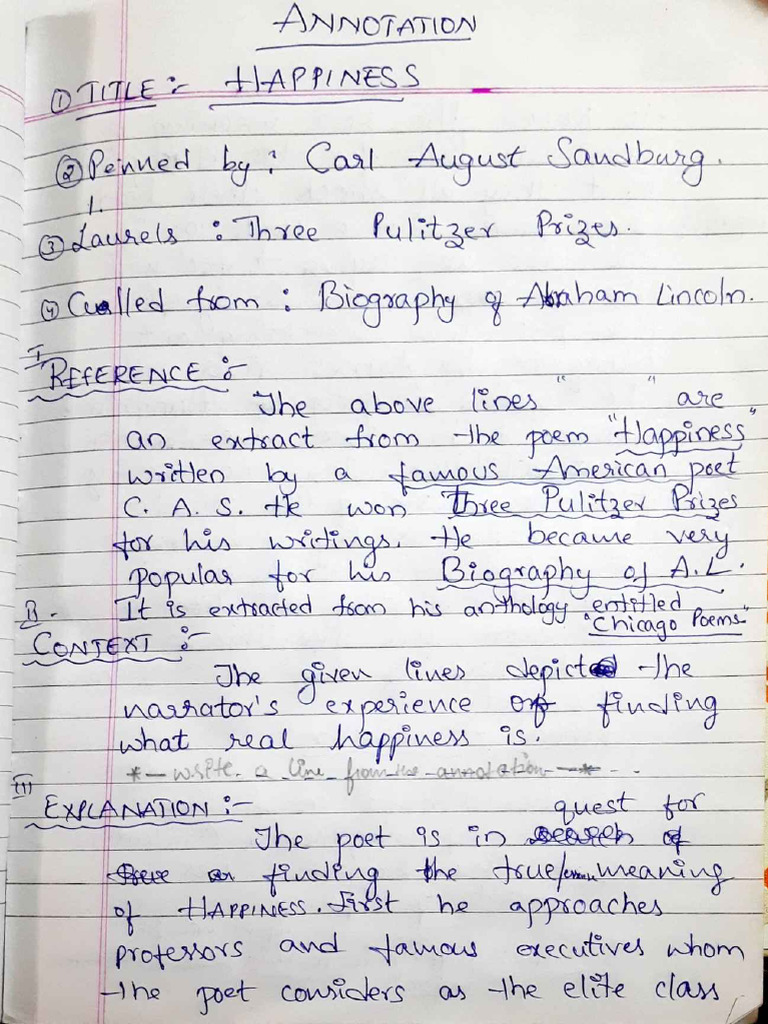 ANNOTATION
① TITLE :- HAPPINESS
② Penned by : Carl August Sandburg.
1.
③ Laurels : Three Pulitzer Prizes.
④ Culled from : Biography of Abraham Lincoln.
I
REFERENCE :-
The above lines " " are
an extract from the poem "Happiness"
written by a famous American poet
C. A. S. He won Three Pulitzer Prizes
for his writings. He became very
popular for his Biography of A.L.
II. It is extracted from his anthology entitled
"Chicago Poems"
CONTEXT :-
The given lines depict the
narrator's experience of finding
what real happiness is.
*- write a line from the annotation -*
III
EXPLANATION :- quest for
The poet is in search of
finding the true/ meaning
of HAPPINESS. First he approaches
professors and famous executives whom
the poet considers as the elite class